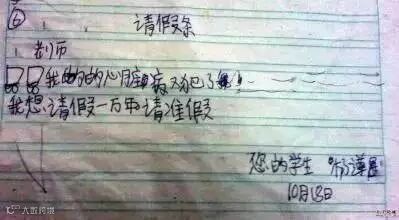 ⑥ 请假条
老师
我的的心脏病又犯了
我想请假一万年请准假
您的学生
10月18日
大数跨境